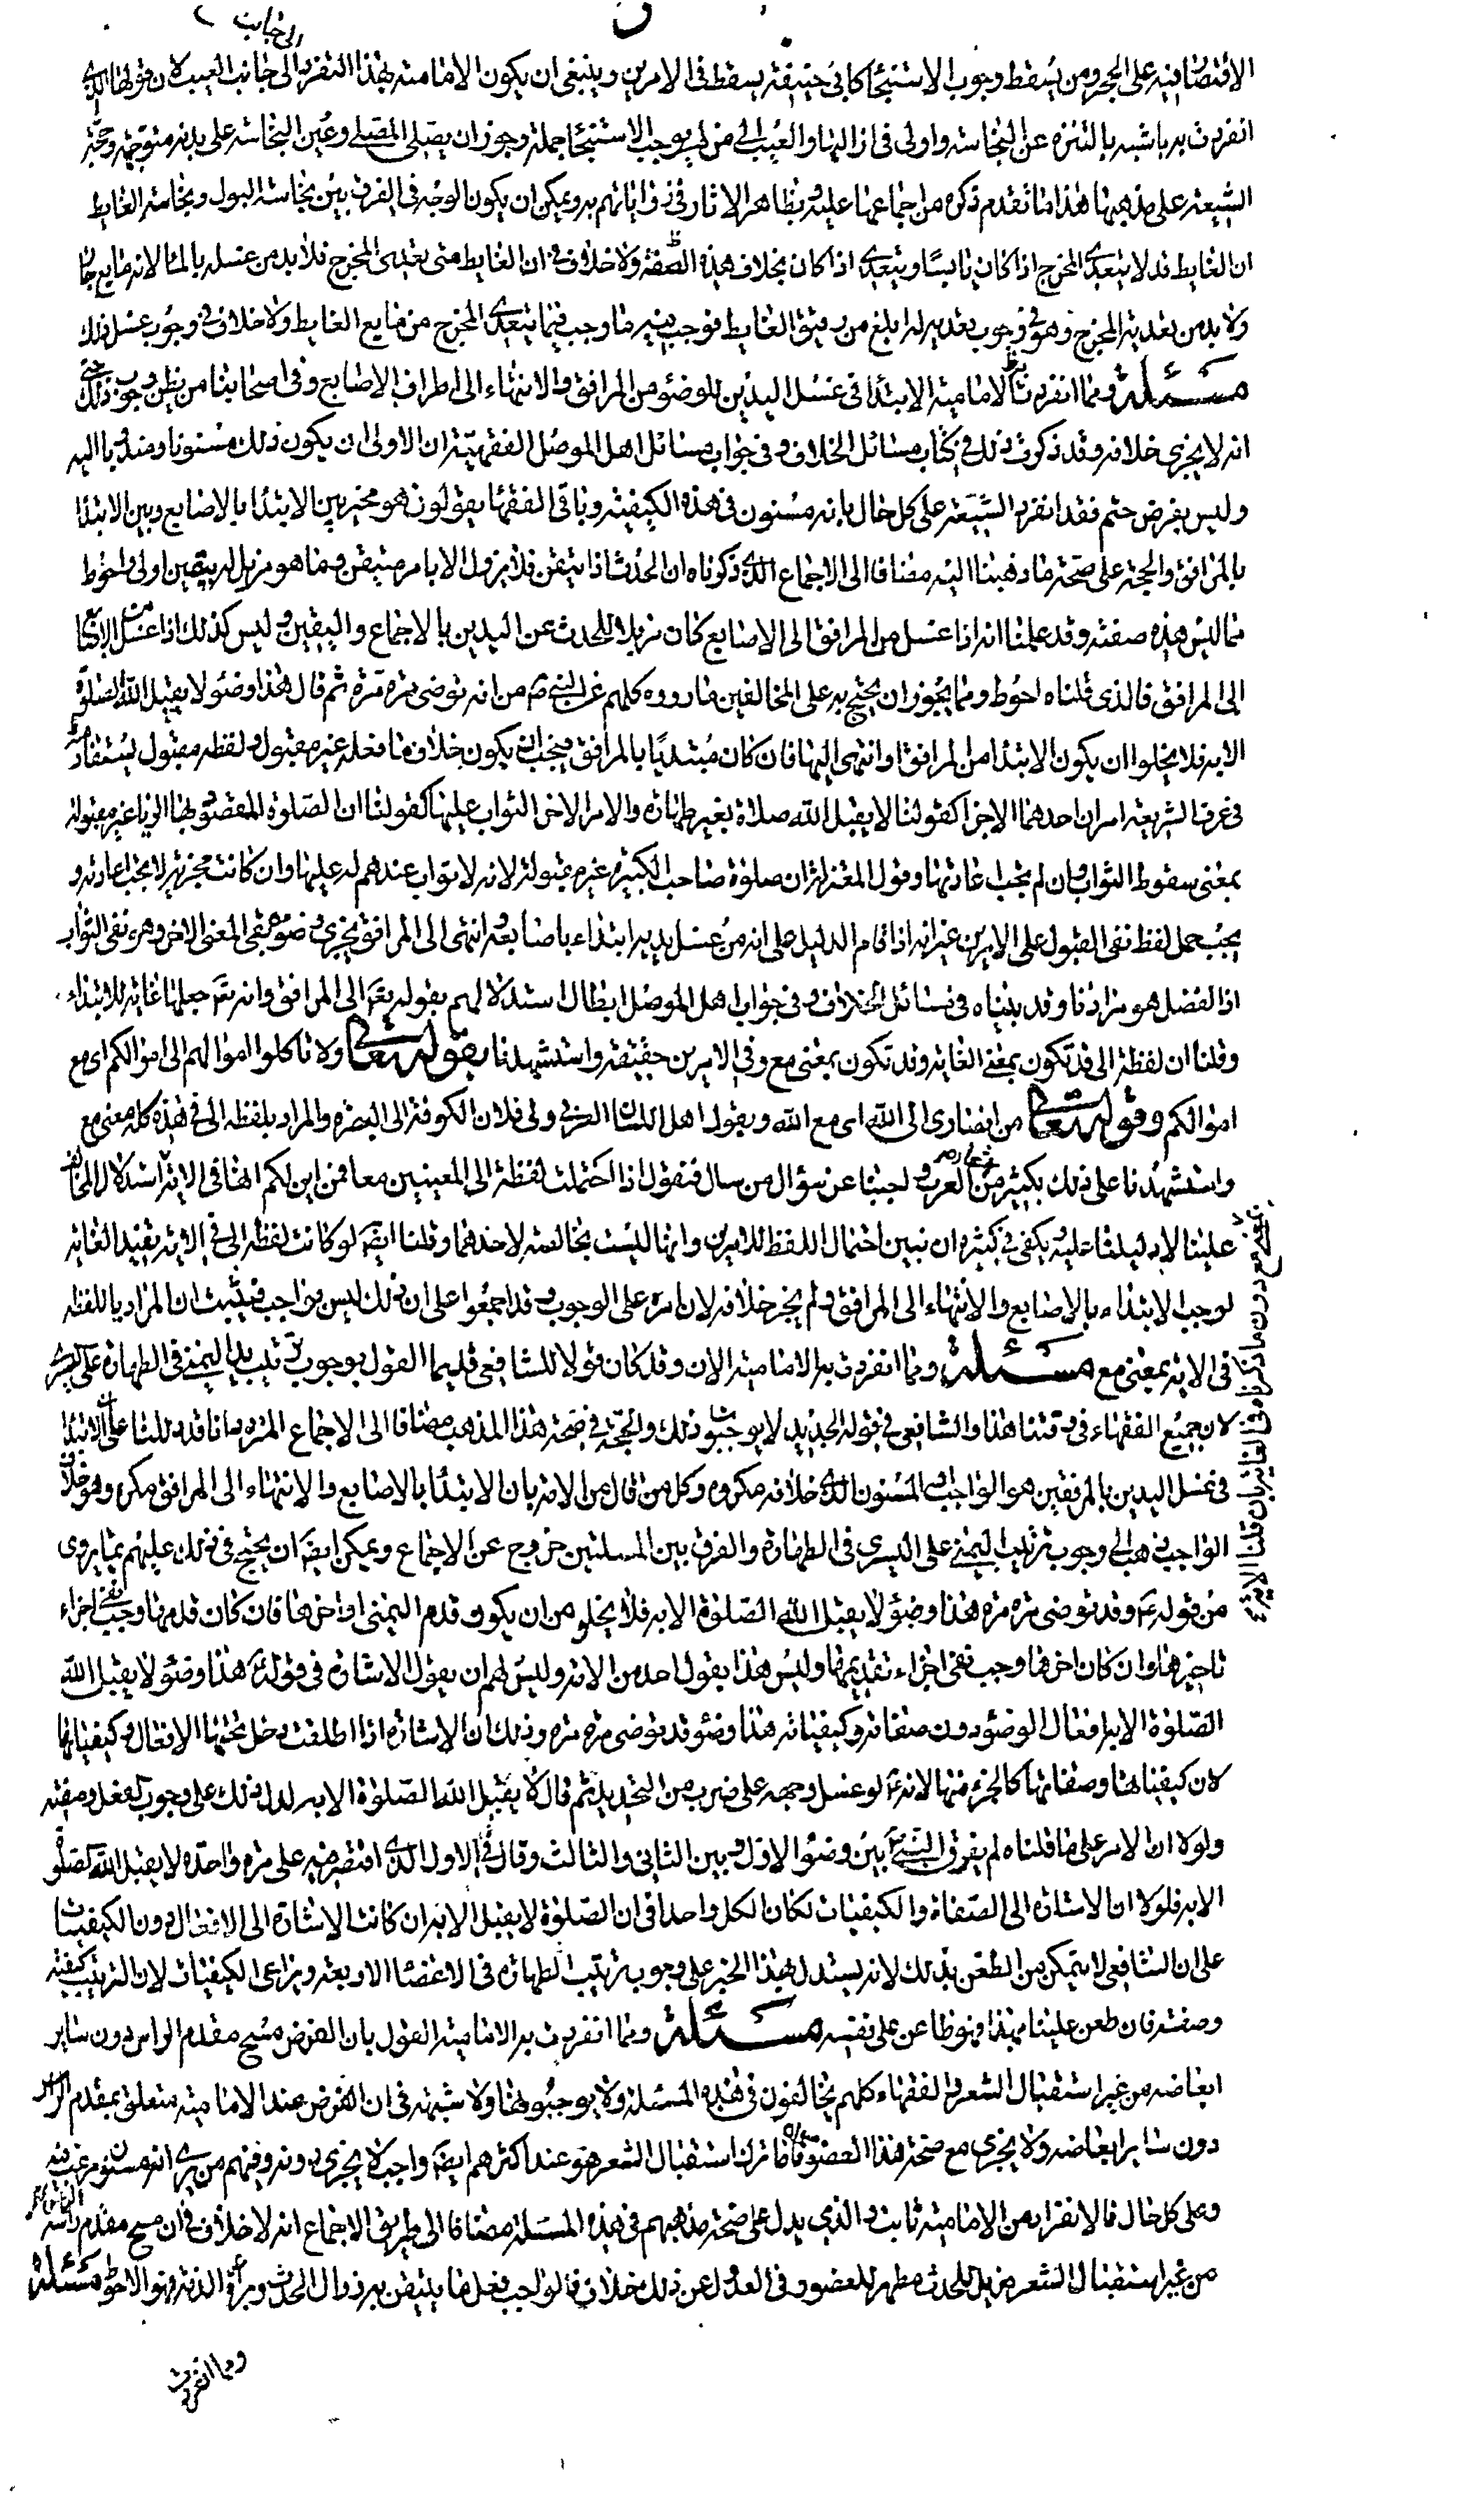 الى جانب
الاقتصار فيه على الحجر ومن يسقط وجوب الاستنجاء كابى حنيفة يسقط فى الامرين وينبغى ان يكون الامامية بهذا التفرد الى جانب العيب لان قولها الذى
انفردت به اشبه بالتنزه عن النجاسة واولى فى ازالتها والعيب الى من لم يوجب الاستنجاء جملة وجوز ان يصلى المصلى وعين النجاسة على بدنه متوجه وحجة
الشيعة على مذهبها هذا ما تقدم ذكره من اجماعها عليه وتظاهر الاثار فى رواياتهم به ويمكن ان يكون الوجه فى الفرق بين نجاسة البول ونجاسة الغايط
ان الغايط قد لا يتعدى المخرج اذا كان يابسا ويتعدى اذا كان بخلاف هذه الصفة ولا خلاف فى ان الغايط متى تعدى المخرج فلا بد من غسله بالماء لانه مايع جار
ولا بد من تعديه المخرج وهو فى وجوب تعديه له ابلغ من رقيق الغايط فوجب فيه ما وجب فيما يتعدى المخرج من مايع الغايط ولا خلاف فى وجوب غسل ذلك
مسئلة ومما انفردت به الامامية الابتداء فى غسل اليدين للوضوء من المرافق والانتهاء الى اطراف الاصابع وفى اصحابنا من يظن وجوب ذلك حتى
انه لا يجزى خلافه وقد ذكرت ذلك فى كتاب مسائل الخلاف وفى جواب مسائل اهل الموصل الفقهية ان الاولى ان يكون ذلك مسنونا ومندوبا اليه
وليس بفرض حتم فقد انفردت الشيعة على كل حال بانه مسنون فى هذه الكيفية وباقى الفقهاء يقولون هو مخير بين الابتداء بالاصابع وبين الابتداء
بالمرافق والحجة على صحة ما ذهبنا اليه مضافا الى الاجماع الذى ذكرناه ان الحدث اذا تيقن فلا يزول الا بامر متيقن وما هو مزيل له بيقين اولى واحوط
مما ليس هذه صفته وقد علمنا انه اذا غسل من المرافق الى الاصابع كان مزيلا للحدث عن اليدين بالاجماع واليقين وليس كذلك اذا غسل من الاصابع
الى المرافق فالذى قلناه احوط ومما يجوز ان يحتج به على المخالفين ما رووه كلهم عن النبى ص من انه توضى مرة مرة ثم قال هذا وضوء لا يقبل الله الصلوة
الا به فلا يخلوا ان يكون الابتداء من المرافق او انتهى اليها فان كان مبتديا بالمرافق فيجب ان يكون خلاف ما فعله غير مقبول ولفظه مقبول يستفاد منه
فى عرف الشريعة امران احدهما الاجزاء كقولنا لا يقبل الله صلاة بغير طهارة والامر الاخر الثواب عليها كقولنا ان الصلوة المقصود بها الريا غير مقبولة
بمعنى سقوط الثواب وان لم يجب اعادتها وقول المعتزلة ان صلوة صاحب الكبيرة غير مقبولة لانه لا ثواب عندهم له عليها وان كانت مجزية لا يجب اعادته و
يجب حمل لفظ نفى القبول على الامرين غير انه اذا قام الدليل على انه من غسل يديه ابتداء باصابعه وانتهى الى المرافق يجزى وضوءه بقى المعنى الاخر وهو نفى الثواب
اذ الفضل هو مرادنا وقد بيناه فى مسائل الخلاف وفى جواب اهل الموصل ابطال استدلالهم بقوله تعه الى المرافق وانه تعه جعلها غاية للابتداء
وقلنا ان لفظة الى قد تكون بمعنى الغاية وقد تكون بمعنى مع وفى الامرين حقيقة واستشهدنا بقوله تعالى ولا تاكلوا اموالهم الى اموالكم اى مع
اموالكم وقوله تعالى من انصارى الى الله اى مع الله ويقول اهل اللسان العربى ولى فلان الكوفة الى البصرة والمراد بلفظه الى فى هذه كله معنى مع
واستشهدنا على ذلك بكثير من اشعار العرب واجبنا عن سؤال من سال فنقول اذا احتملت لفظة الى المعنيين معا فمن اين لكم انها فى الاية استدلال المخالف
علينا لا دليلنا عليه يكفى فى كثيره ان نبين احتمال اللفظ للامرين وانها ليست بخالصة لاحدهما وقلنا ايضه لو كانت لفظة الى فى الاية تفيد الغاية
لوجب الابتداء بالاصابع والانتهاء الى المرافق ولم يجز خلافه لان امره على الوجوب وقد اجمعوا على ان ذلك ليس بواجب فيثبت ان المراد باللفظه
فى الاية بمعنى مع مسئلة ومما انفردت به الامامية الان وقد كان قولا للشافعى قديما القول بوجوب ترتيب اليد اليمنى فى الطهارة على اليسرى
لان جميع الفقهاء فى وقتنا هذا والشافعى فى قوله الجديد لا يوجبون ذلك والحجة فى صحة هذا المذهب مضافا الى الاجماع المتردد انا قد دللنا على ان الابتداء
فى غسل اليدين بالمرفقين هو الواجب او المسنون الذى خلافه مكروه وكل من قال من الامة بان الابتداء بالاصابع والانتهاء الى المرافق مكروه او هو خلاف
الواجب ذهب الى وجوب ترتيب اليمنى على اليسرى فى الطهارة والفرق بين المسلتين خروج عن الاجماع ويمكن ايضه ان يحتج فى ذلك عليهم بما يروى
من قوله ع وقد توضى مرة مرة هذا وضوء لا يقبل الله الصلوة الا به فلا يخلو من ان يكون قدم اليمنى او اخرها فان كان قدمها وجب نفى اجزاء
تاخيرها وان كان اخرها وجب نفى اجزاء تقديمها وليس هذا بقول احد من الامة وليس لهم ان يقول الاشارة فى قوله ع هذا وضوء لا يقبل الله
الصلوة الا به افعال الوضوء دون صفاته وكيفياته هذا وضوء قد توضى مرة مرة وذلك ان الاشارة اذا اطلقت دخل تحتها الافعال وكيفياتها
لان كيفياتها وصفاتها كالجزء منها لانه ع لو غسل وجهه على ضرب من التحديد ثم قال لا يقبل الله الصلوة الا به لدل ذلك على وجوب الفعل وصفته
ولولا ان الامر على ما قلناه لم يفرق النبى ع بين وضوء الاول وبين الثانى والثالث وقال فى الاول الذى اقتصر فيه على مرة واحدة لا يقبل الله الصلوة
الا به فلولا ان الاشارة الى الصفات والكيفيات لكان الكل واحدا فى ان الصلوة لا يقبل الا به ان كانت الاشارة الى الافعال دون الكيفيات
على ان الشافعى لا يتمكن من الطعن بذلك لانه يستدل بهذا الخبر على وجوب ترتيب الطهارة فى الاعضاء الاربعة ويراعى الكيفيات لان الترتيب كيفية
وصفة فان طعن علينا بهذا فهو طاعن على نفسه مسئلة ومما انفردت به الامامية القول بان الفرض مسح مقدم الراس دون ساير
ابعاضه من غير استقبال الشعر والفقهاء كلهم يخالفون فى هذه المسئلة ولا يوجبونها ولا شبهة فى ان الفرض عند الامامية متعلق بمقدم الراس
دون ساير ابعاضه ولا يجزى مع صحة هذا العضو سواه فاما ترك استقبال الشعر فهو عند اكثرهم ايضه واجب لا يجزى دونه وفيهم من يرى انه مسنون مرغب فيه
وعلى كل حال فالانفراد من الامامية ثابت والذى يدل على صحة مذهبهم فى هذه المسئلة مضافا الى طريق الاجماع انه لا خلاف فى ان مسح مقدم راسه
من غير استقبال الشعر مزيل للحدث مطهر للعضو وفى العدول عن ذلك خلاف فالواجب فعل ما يتيقن به زوال الحدث وبراءة الذمة فهو الاحوط مسئلة
ومما انفردت